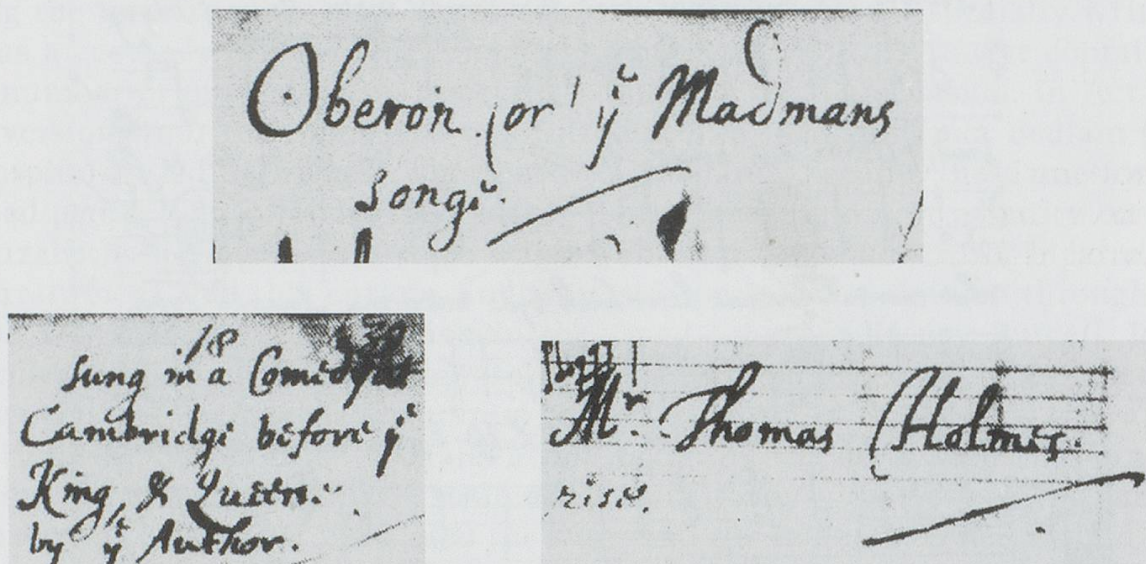 Oberon, or yᵉ Madmans
songe.
18
sung in a Comedy at
Cambridge before yᵉ
King, & Queene.
by yᵉ Author.
Mʳ. Thomas Holmes.
rise.